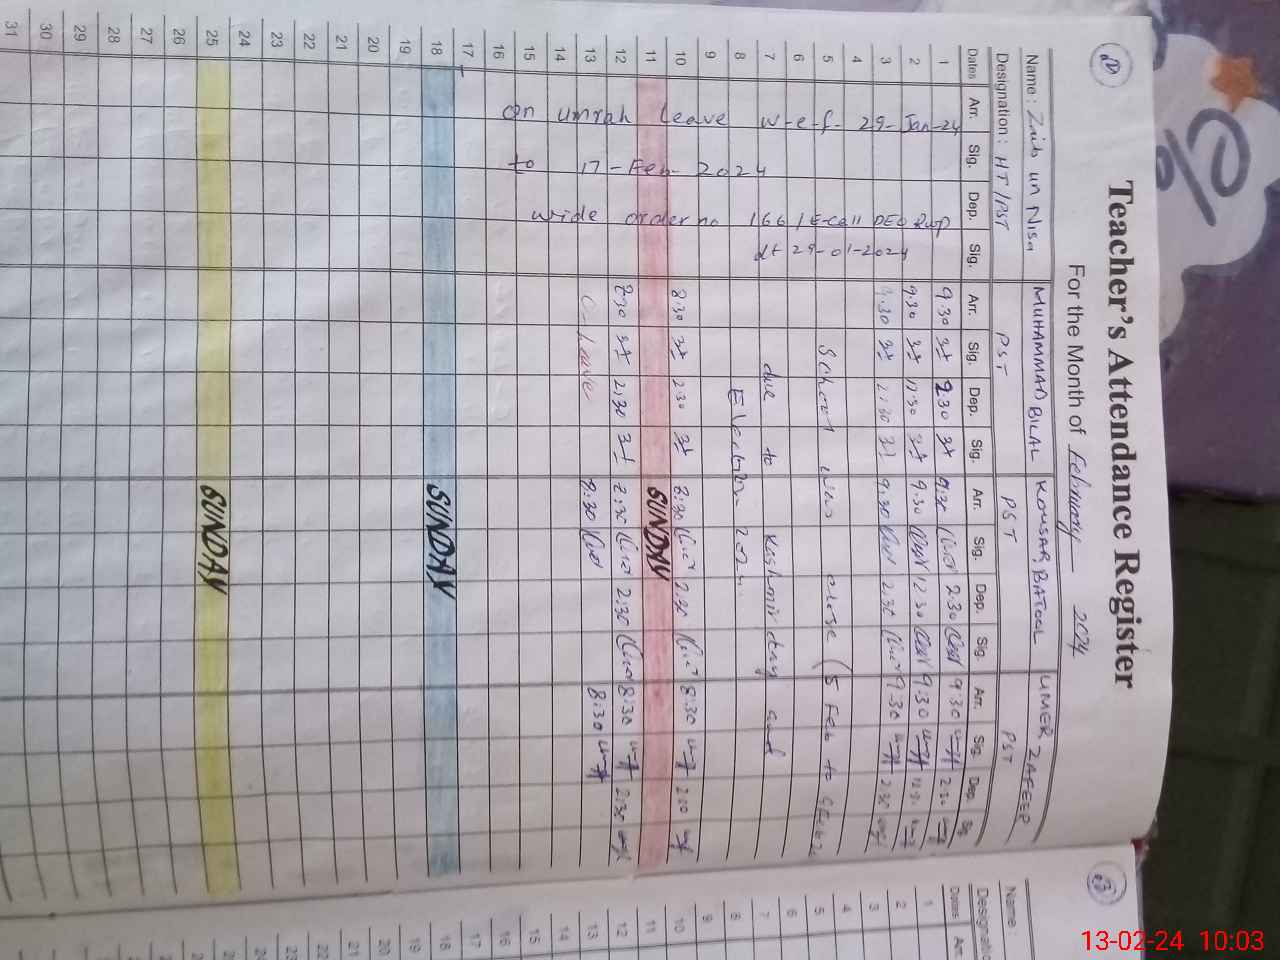 Teacher's Attendance Register
For the Month of February 2024
Name: Zaib un Nisa MUHAMMAD BILAL KOUSAR BATOOL UMER ZAFEER
Designation: HT/PST PST PST PST
Dates Arr. Sig. Dep. Sig. Arr. Sig. Dep. Sig. Arr. Sig. Dep. Sig. Arr. Sig. Dep. Sig.
on umrah leave w-e-f- 29-Jan-24
to 17-Feb-2024
wide order no 166/E-cell DEO Rwp
dt 29-01-2024
1 9:30 2:30 9:30 2:30 9:30 2:30
2 9:30 12:30 9:30 12:30 9:30 12:30
3 9:30 2:30 9:30 2:30 9:30 2:30
4
5 School was close (5 Feb to 9 Feb 24
6
7 due to Kashmir day and
8 Election 2024
9
10 8:30 2:30 8:30 2:30 8:30
11 SUNDAY
12 8:30 2:30 8:30 2:30 8:30 2:30
13 C-Leave 8:30 8:30
14
15
16
17
18 SUNDAY
19
20
21
22
23
24
25 SUNDAY
26
27
28
29
30
31
Name:
Dates
1
2
3
4
5
6
7
8
9
10
11
12
13
14
15
16
17
18
19
20
21
22
23
24
25
13-02-24 10:03